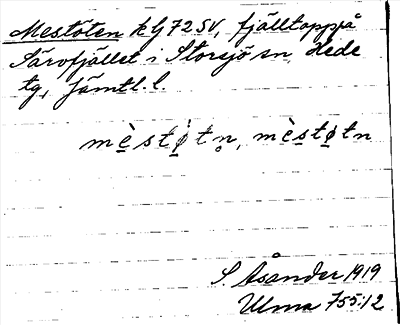 Mestöten kG 72 SV, fjälltopp på
Särvfjället i Storsjö sn, Hede
tg, Jämtl. l.
mèstøtn, mèstøtn
S. Åsander 1919
Ulma 755:12